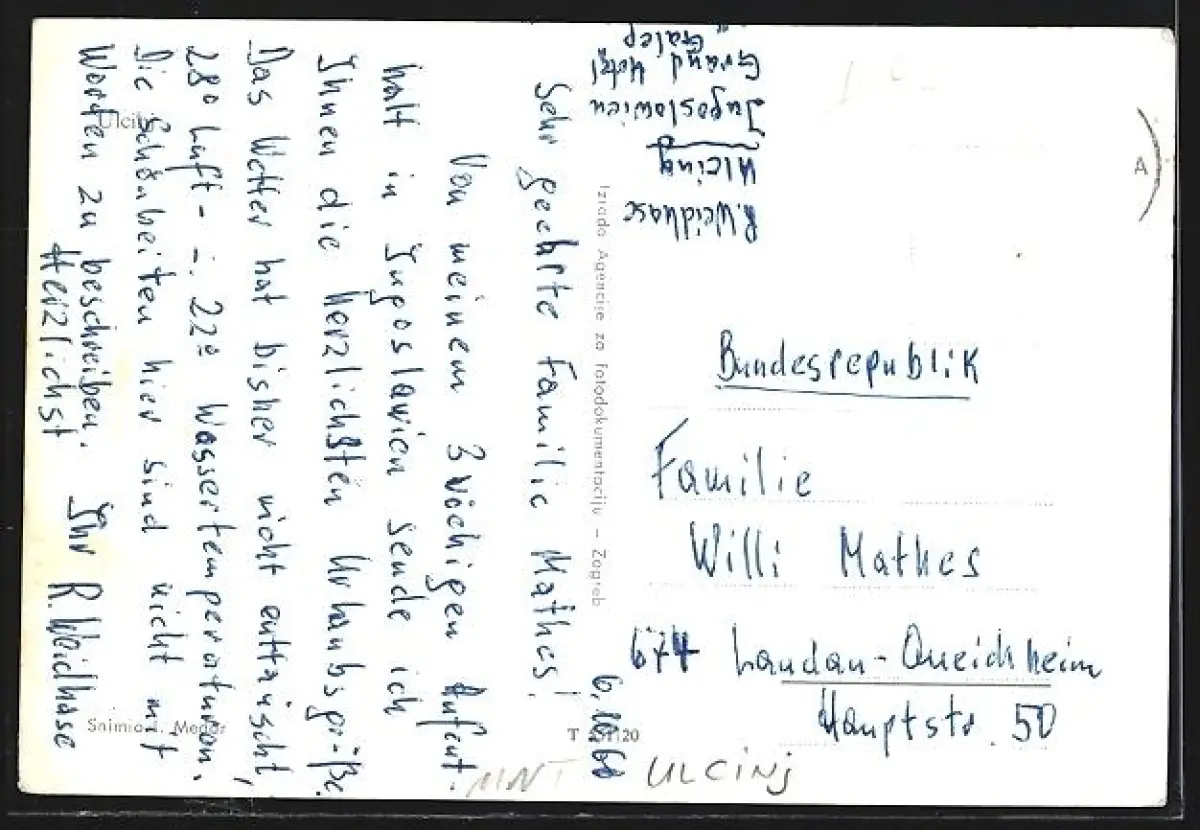 R. Weidhase
Ulcinj
Jugoslawien
Grand Hotel
Galeb
6.10.66
Sehr geehrte Familie Mathes!
Von meinem 3 wöchigen Aufent-
halt in Jugoslawien sende ich
Ihnen die herzlichsten Urlaubsgrüße.
Das Wetter hat bisher nicht enttäuscht,
28° Luft- -:- 22° Wassertemperaturen.
Die Schönheiten hier sind nicht mit
Worten zu beschreiben.
Herzlichst Ihr R. Weidhase
Ulcinj
Snimio J. Medar
Izrada Agencije za fotodokumentaciju – Zagreb
A
Bundesrepublik
Familie
Willi Mathes
674 Landau-Queichheim
Hauptstr. 50
MNT ULCINJ